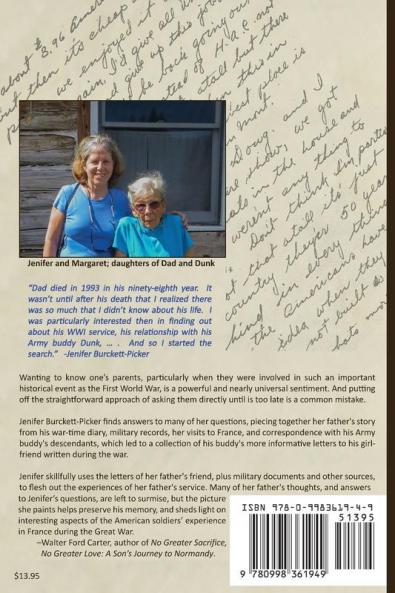 about $3.96 Ameri
but then it's cheap
we enjoyed it
I'd give all
give up this jo
be back going ou
stead of
stall but there
in this in
place is
most.
Doug. and I
show, we got
in the house and
weren't any thing to
Don't think I'm partia
at that atall its' just
country, they're 50 year
hind in every thing
the Americans have
idea when they
not built
Jenifer and Margaret; daughters of Dad and Dunk
"Dad died in 1993 in his ninety-eighth year. It
wasn't until after his death that I realized there
was so much that I didn't know about his life. I
was particularly interested then in finding out
about his WWI service, his relationship with his
Army buddy Dunk, ... . And so I started the
search." -Jenifer Burckett-Picker
Wanting to know one's parents, particularly when they were involved in such an important
historical event as the First World War, is a powerful and nearly universal sentiment. And putting
off the straightforward approach of asking them directly until is too late is a common mistake.
Jenifer Burckett-Picker finds answers to many of her questions, piecing together her father's story
from his war-time diary, military records, her visits to France, and correspondence with his Army
buddy's descendants, which led to a collection of his buddy's more informative letters to his girl-
friend written during the war.
Jenifer skillfully uses the letters of her father's friend, plus military documents and other sources,
to flesh out the experiences of her father's service. Many of her father's thoughts, and answers
to Jenifer's questions, are left to surmise, but the picture
she paints helps preserve his memory, and sheds light on
interesting aspects of the American soldiers' experience
in France during the Great War.
–Walter Ford Carter, author of No Greater Sacrifice,
No Greater Love: A Son's Journey to Normandy.
$13.95
ISBN 978-0-9983619-4-9
51395
9 780998 361949